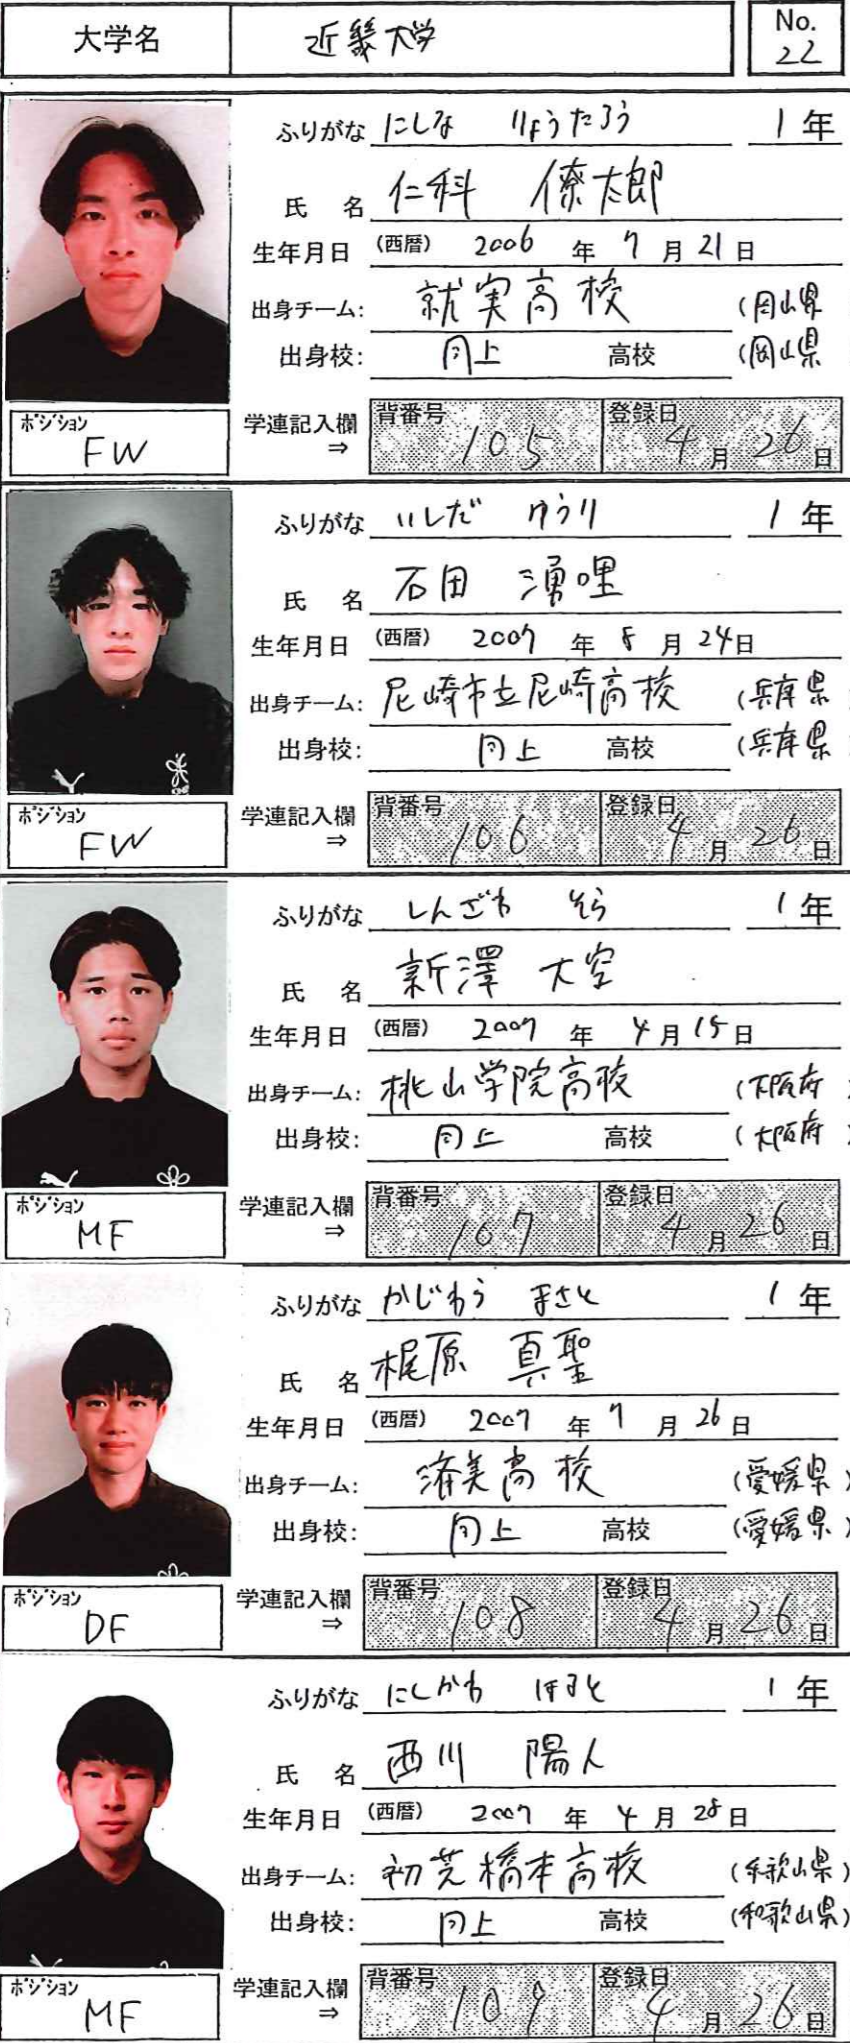 大学名 近畿大学 No. 22
ふりがな にしな りょうたろう 1年
氏 名 仁科 僚太郎
生年月日 (西暦) 2006 年 7 月 21 日
出身チーム: 就実高校 (岡山県
出身校: 同上 高校 (岡山県
ポジション FW 学連記入欄⇒ 背番号 105 登録日 4月26日
ふりがな いしだ ゆうり 1年
氏 名 石田 湧哩
生年月日 (西暦) 2007 年 8 月 24日
出身チーム: 尼崎市立尼崎高校 (兵庫県
出身校: 同上 高校 (兵庫県
ポジション FW 学連記入欄⇒ 背番号 106 登録日 4月26日
ふりがな しんざわ そら 1年
氏 名 新澤 大空
生年月日 (西暦) 2007 年 4月15日
出身チーム: 桃山学院高校 (大阪府
出身校: 同上 高校 (大阪府
ポジション MF 学連記入欄⇒ 背番号 107 登録日 4月26日
ふりがな かじわら まさと 1年
氏 名 梶原 真聖
生年月日 (西暦) 2007 年 7 月 26日
出身チーム: 済美高校 (愛媛県)
出身校: 同上 高校 (愛媛県)
ポジション DF 学連記入欄⇒ 背番号 108 登録日 4月26日
ふりがな にしかわ はると 1年
氏 名 西川 陽人
生年月日 (西暦) 2007 年 4 月 28日
出身チーム: 初芝橋本高校 (和歌山県)
出身校: 同上 高校 (和歌山県)
ポジション MF 学連記入欄⇒ 背番号 109 登録日 4月26日